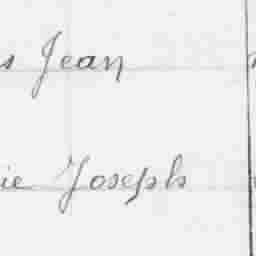 s Jean
ie Joseph